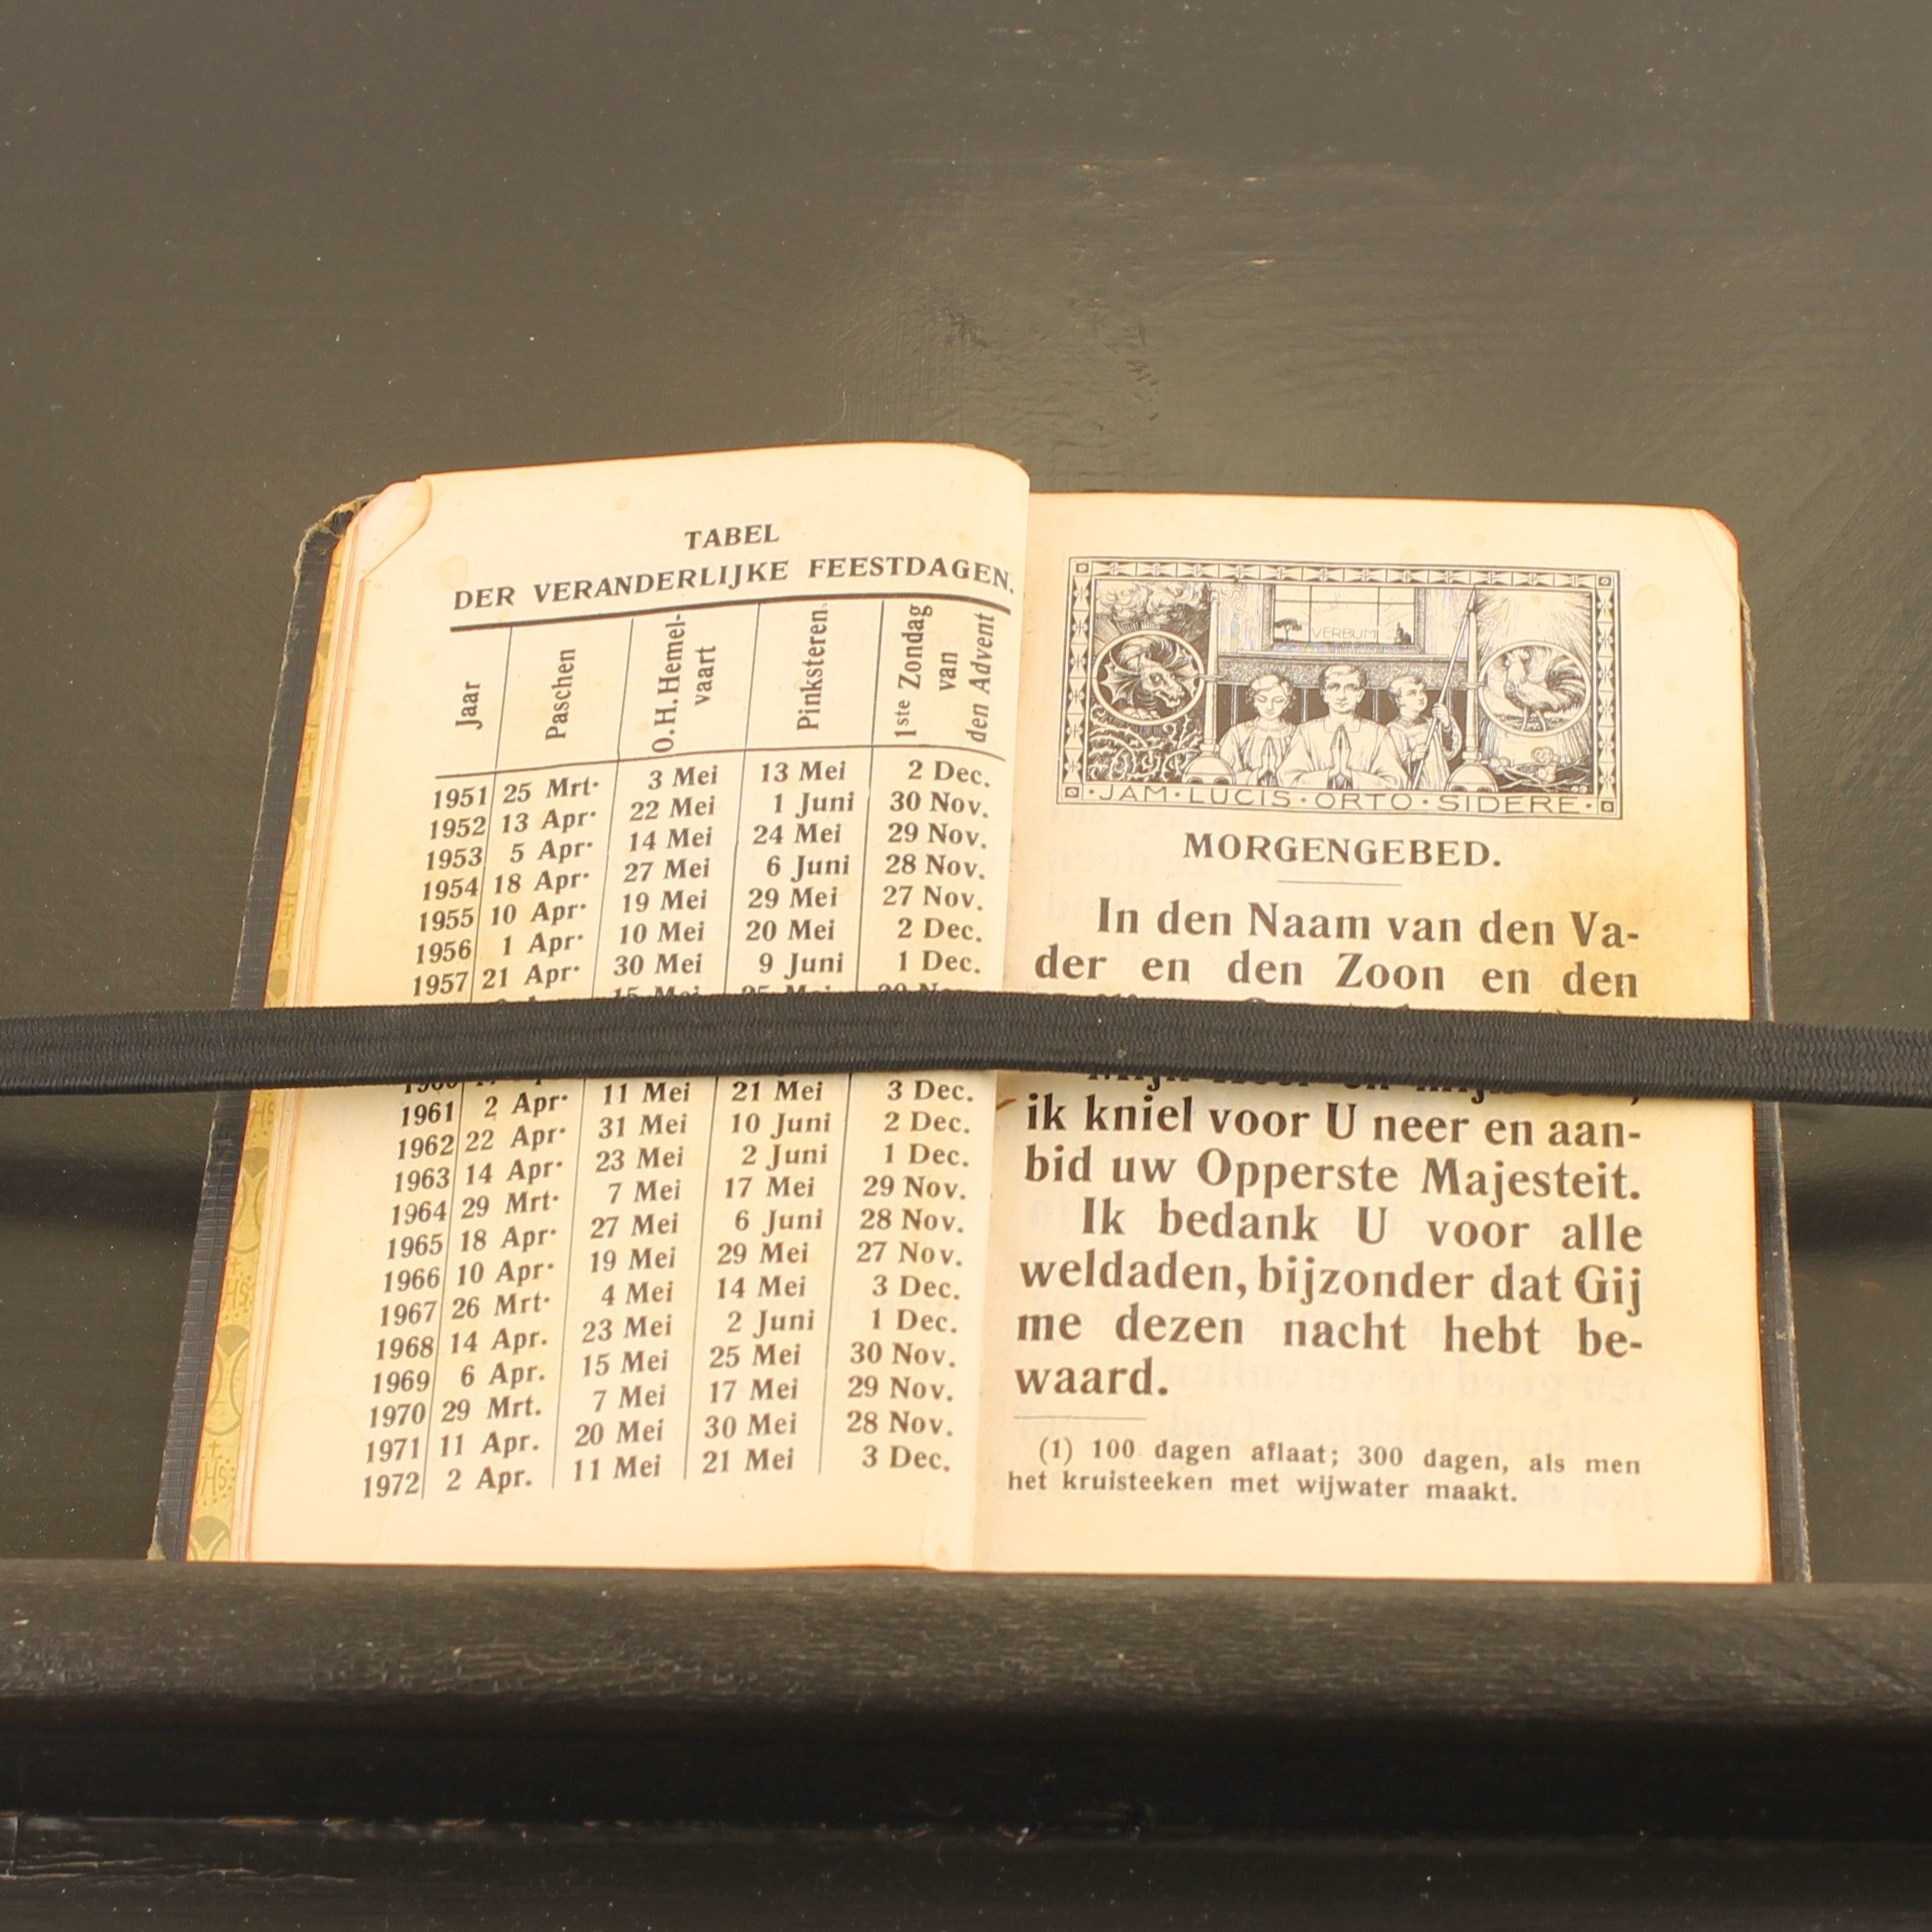 TABEL
DER VERANDERLIJKE FEESTDAGEN.
Jaar Paschen O. H. Hemel-vaart Pinksteren 1ste Zondag van den Advent
1951 25 Mrt. 3 Mei 13 Mei 2 Dec.
1952 13 Apr. 22 Mei 1 Juni 30 Nov.
1953 5 Apr. 14 Mei 24 Mei 29 Nov.
1954 18 Apr. 27 Mei 6 Juni 28 Nov.
1955 10 Apr. 19 Mei 29 Mei 27 Nov.
1956 1 Apr. 10 Mei 20 Mei 2 Dec.
1957 21 Apr. 30 Mei 9 Juni 1 Dec.
15 Mei 25 Mei
1960
1961 2 Apr. 11 Mei 21 Mei 3 Dec.
1962 22 Apr. 31 Mei 10 Juni 2 Dec.
1963 14 Apr. 23 Mei 2 Juni 1 Dec.
1964 29 Mrt. 7 Mei 17 Mei 29 Nov.
1965 18 Apr. 27 Mei 6 Juni 28 Nov.
1966 10 Apr. 19 Mei 29 Mei 27 Nov.
1967 26 Mrt. 4 Mei 14 Mei 3 Dec.
1968 14 Apr. 23 Mei 2 Juni 1 Dec.
1969 6 Apr. 15 Mei 25 Mei 30 Nov.
1970 29 Mrt. 7 Mei 17 Mei 29 Nov.
1971 11 Apr. 20 Mei 30 Mei 28 Nov.
1972 2 Apr. 11 Mei 21 Mei 3 Dec.
VERBUM
·JAM·LUCIS·ORTO·SIDERE·
MORGENGEBED.
In den Naam van den Va-
der en den Zoon en den
ik kniel voor U neer en aan-
bid uw Opperste Majesteit.
Ik bedank U voor alle
weldaden, bijzonder dat Gij
me dezen nacht hebt be-
waard.
(1) 100 dagen aflaat; 300 dagen, als men
het kruisteeken met wijwater maakt.